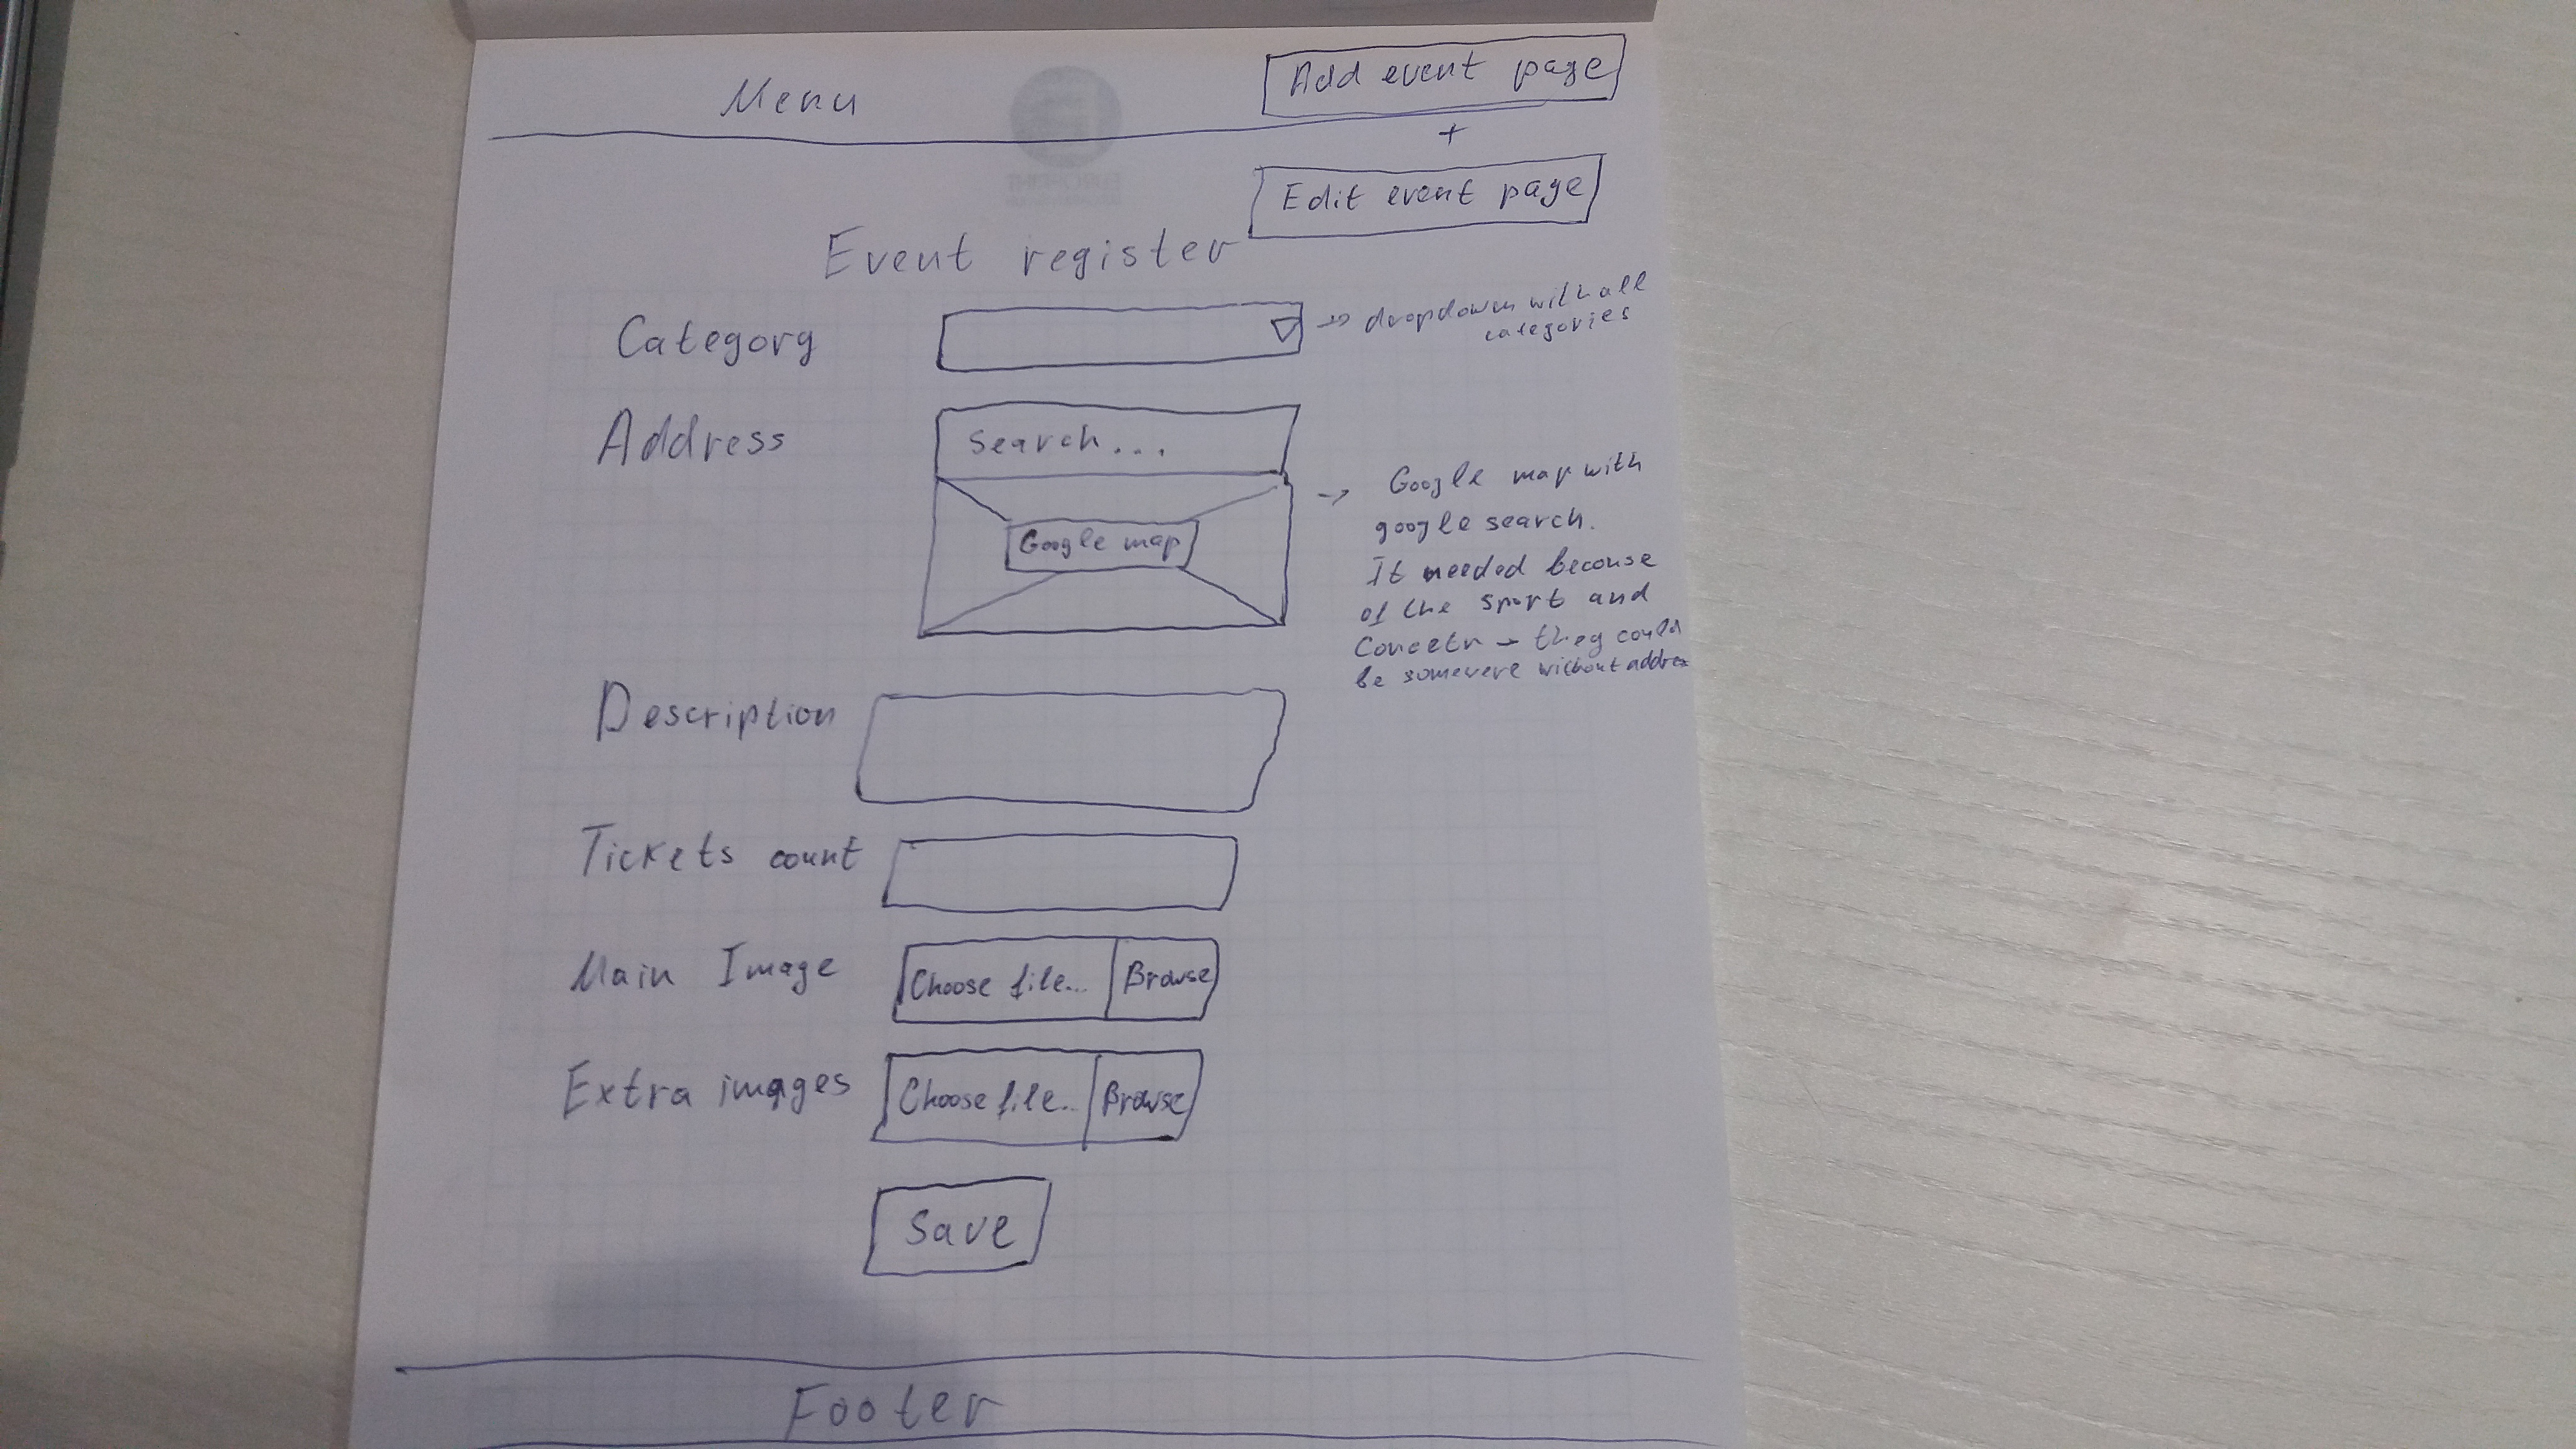 Menu
Add event page
+
Edit event page
Event register
Category
→ dropdown with all
categories
Address
Search...
Google map
→ Google map with
google search.
It needed becouse
of the sport and
→ they could
be somewere without addres
Description
Tickets count
Main Image
Choose file... Browse
Extra images
Choose file... Browse
Save
Footer